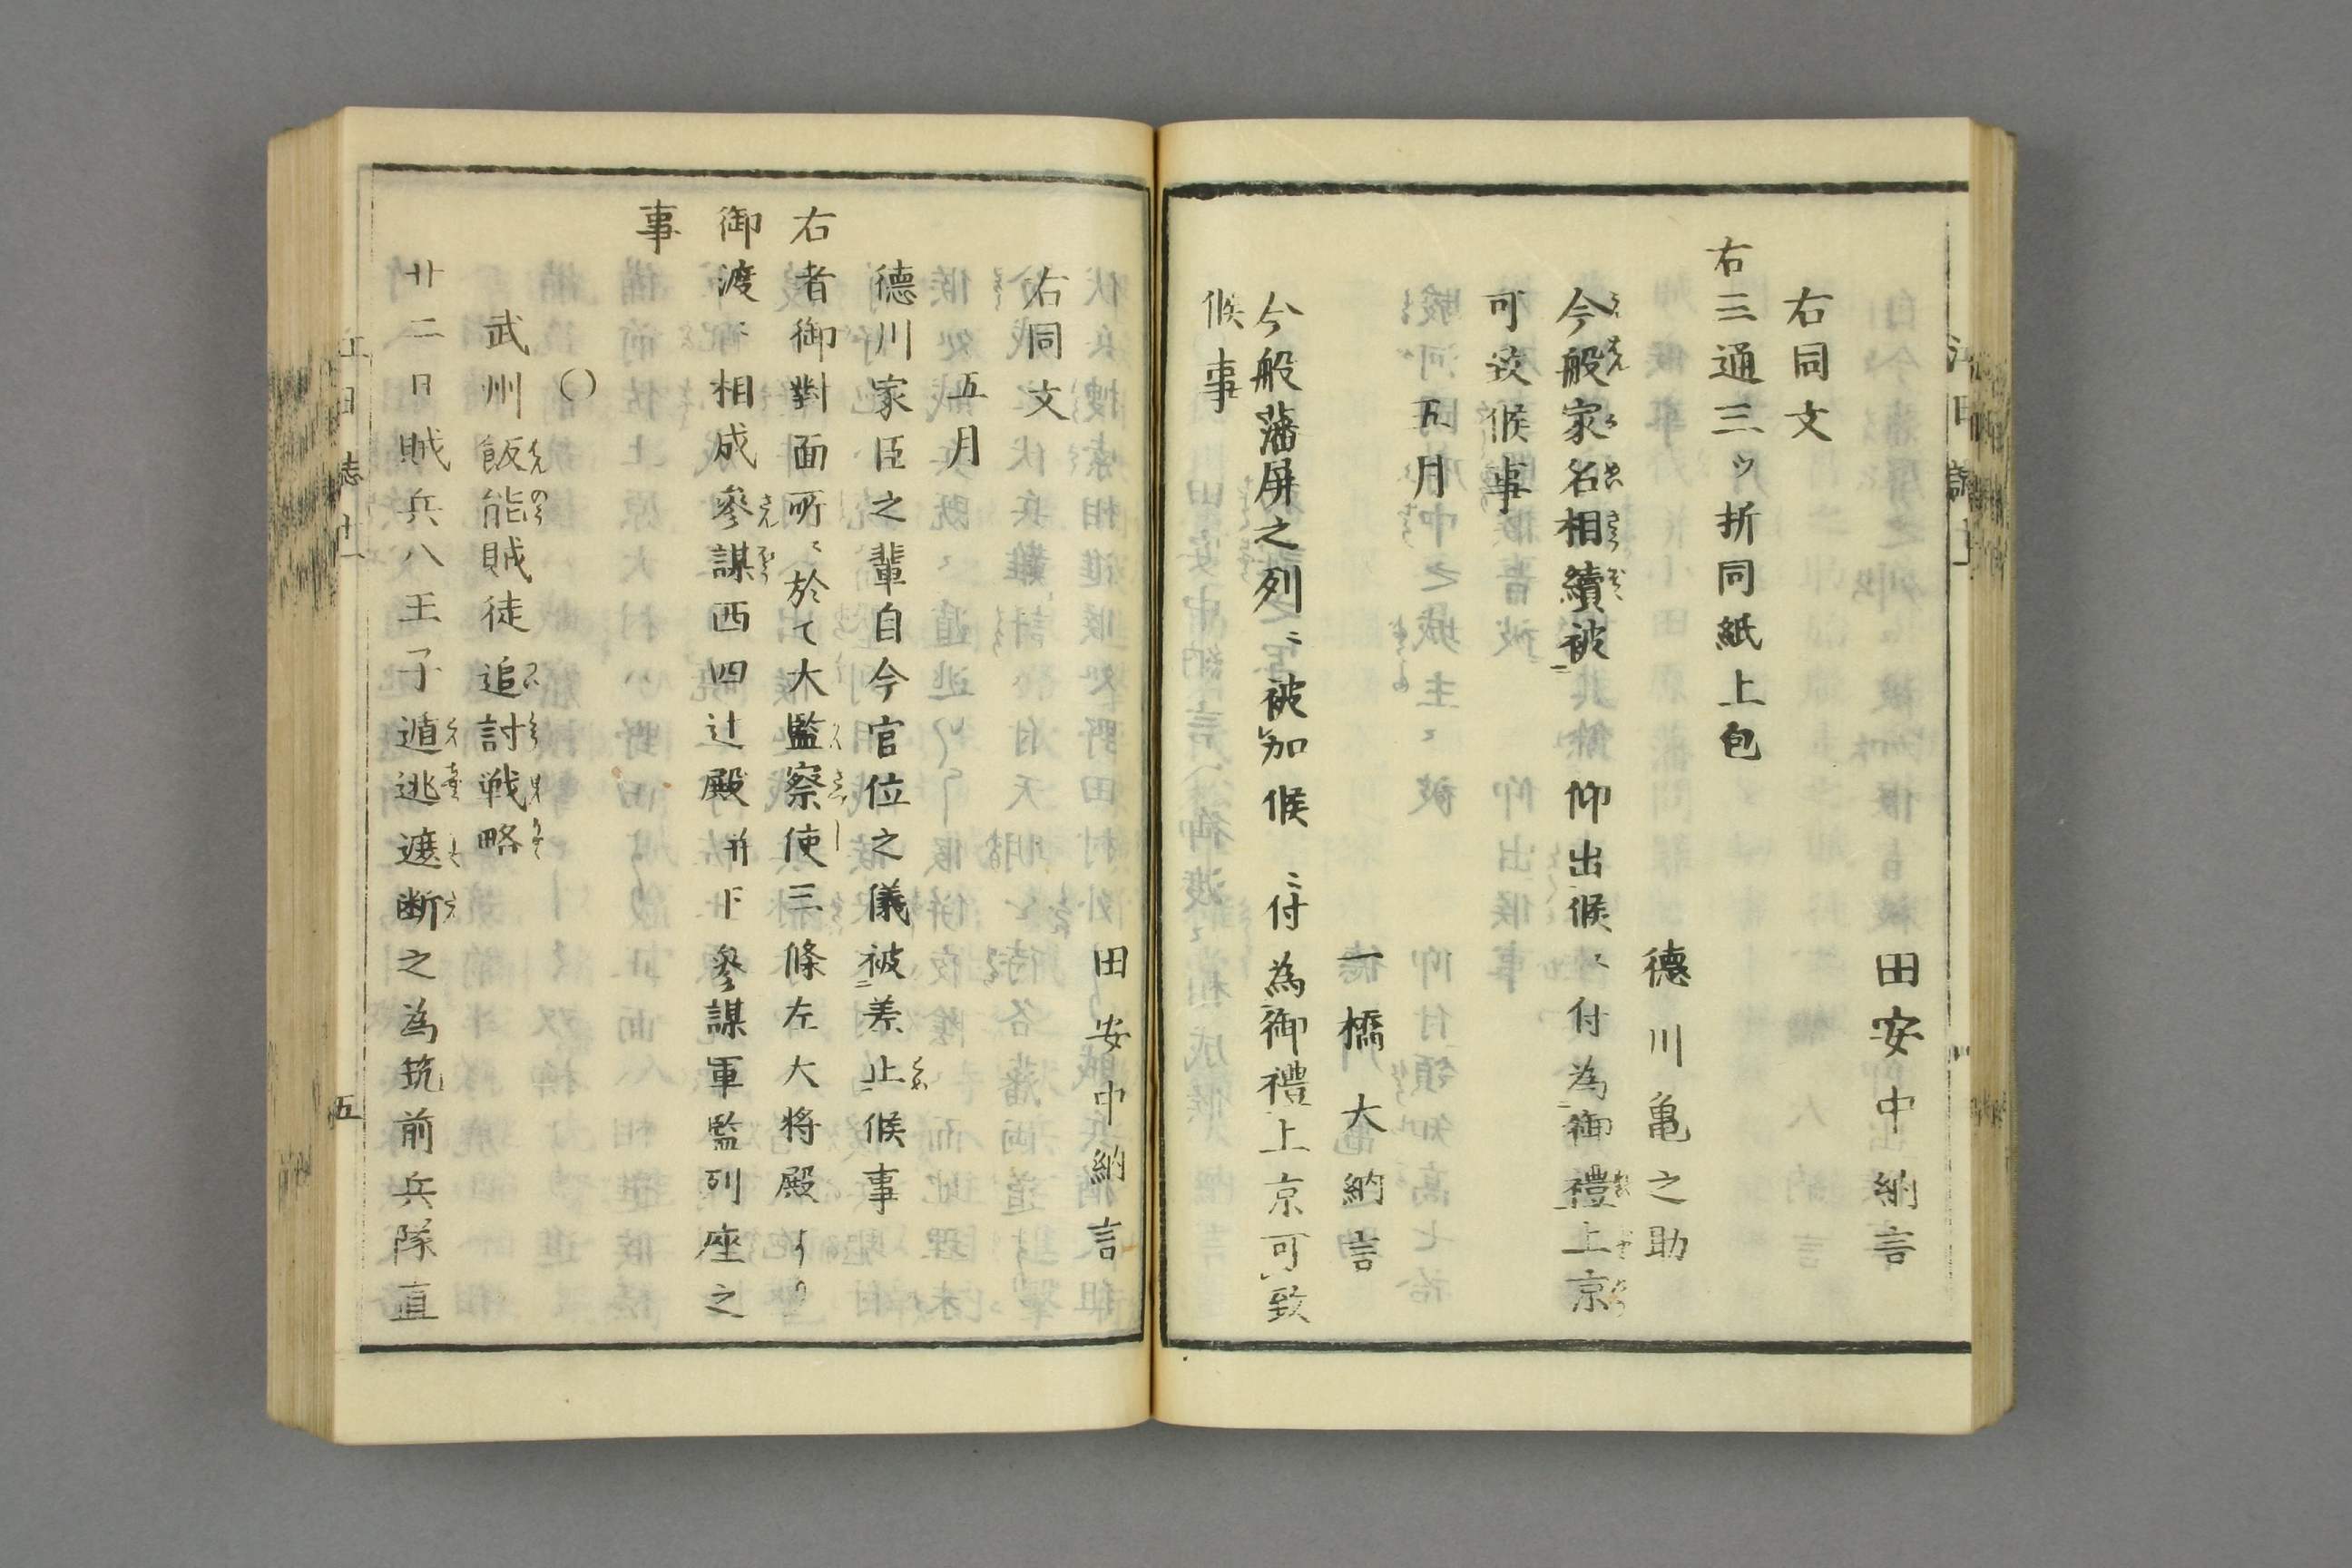 田安中納言
右同文
右三通三ッ折同紙上包
德川亀之助
今般家名相續被　仰出候ニ付為御禮上京
可致候事
五月
一橋大納言
今般藩屏之列ニ被加候ニ付為御禮上京可致
候事
田安中納言
右同文
五月
德川家臣之輩自今官位之儀被差止候事
右者御對面所ニ於て大監察使三條左大将殿より
御渡ニ相成參謀西四辻殿并下參謀軍監列座之
事
〇
武州飯能賊徒追討戦略
廿二日賊兵八王子遁逃遮断之為筑前兵隊直
江日誌十一
五